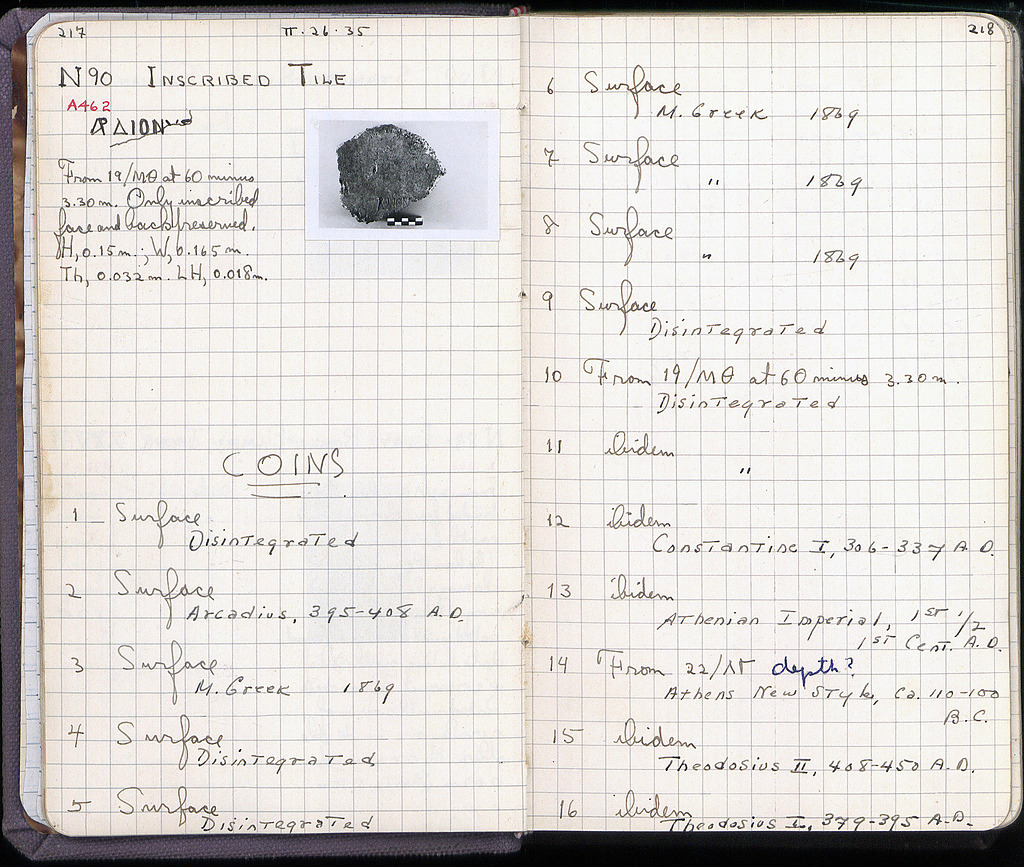 217 II·26·35
N90 INSCRIBED TILE
A462
From 19/ΜΘ at 60 minus
3.30 m. Only inscribed
face and back preserved.
H, 0.15 m.; W, 0.165 m.
Th, 0.032 m. LH, 0.018 m.
COINS
1 Surface
Disintegrated
2 Surface
Arcadius, 395-408 A.D.
3 Surface
M. Greek 1869
4 Surface
Disintegrated
5 Surface
Disintegrated
218
6 Surface
M. Greek 1869
7 Surface
" 1869
8 Surface
" 1869
9 Surface
Disintegrated
10 From 19/ΜΘ at 60 minus 3.30 m.
Disintegrated
11 ibidem
"
12 ibidem
Constantine I, 306-337 A.D.
13 ibidem
Athenian Imperial, 1st 1/2
1st Cent. A.D.
14 From 22/ depth?
Athens New Style, ca. 110-100
B.C.
15 ibidem
Theodosius II, 408-450 A.D.
16 ibidem
Theodosius I, 379-395 A.D.